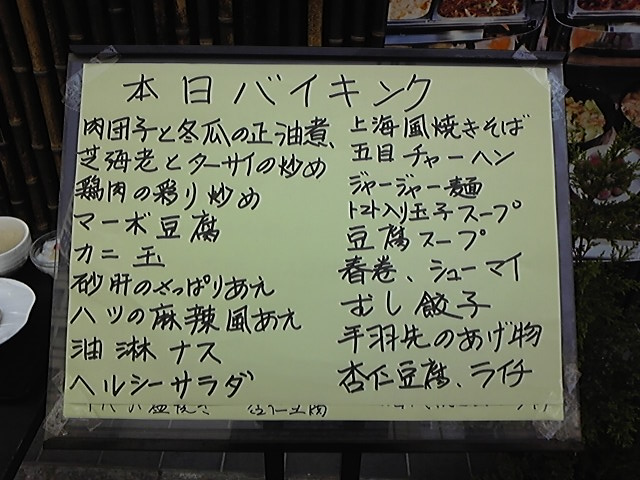 本日バイキング
肉団子と冬瓜の正油煮、
芝海老とターサイの炒め
鶏肉の彩り炒め
マーボ豆腐
カニ玉
砂肝のさっぱりあえ
ハツの麻辣風あえ
油淋ナス
ヘルシーサラダ
上海風焼きそば
五目チャーハン
ジャージャー麺
トマト入り玉子スープ
豆腐スープ
春巻、シューマイ
むし餃子
手羽先のあげ物
杏仁豆腐、ライチ